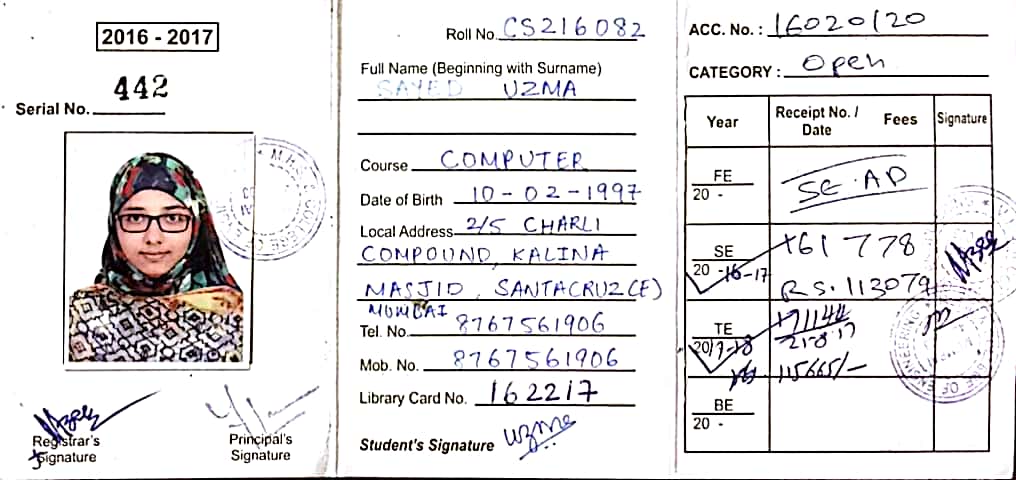 2016 - 2017
442
Serial No.
Registrar's
Signature
Principal's
Signature
Roll No. CS216082
Full Name (Beginning with Surname)
SAYED UZMA
Course COMPUTER
Date of Birth 10-02-1997
Local Address 2/5 CHARLI
COMPOUND, KALINA
MASJID, SANTACRUZ(E)
MUMBAI
Tel. No. 8767561906
Mob. No. 8767561906
Library Card No. 162217
Student's Signature Uzma
ACC. No. : 16020120
CATEGORY : Open
Year Receipt No. / Date Fees Signature
FE
20 -
SE. AD
SE
20 -16-17
161778
RS. 113079
TE
2017-18
171144
21-8-17
115665/-
BE
20 -